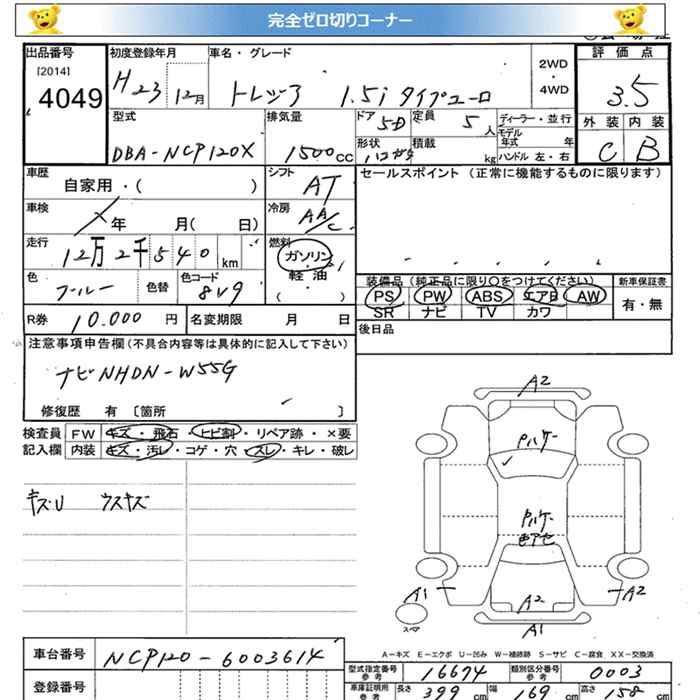 完全ゼロ切りコーナー
出品番号
[2014]
4049
初度登録年月
H23 12月
車名・グレード
トレジア 1.5i タイプユーロ
2WD
・
4WD
評価点
3.5
外装 内装
C B
型式
DBA-NCP120X
排気量
1500cc
ドア 5D
定員 5人
形状
積載 kg
ディーラー・並行
モデル年式 年
ハンドル 左・右
車歴
自家用・( )
シフト
AT
セールスポイント (正常に機能するものに限ります)
車検
年 月( 日)
冷房
AA/C
走行
12万2千540km
燃料
ガソリン・
軽油・
( )
色
ブルー
色替
色コード
8V9
装備品 (純正品に限り○をつけてください)
PS PW ABS エアB AW
SR ナビ TV カワ
新車保証書
有・無
R券 10.000 円
名変期限 月 日
後日品
注意事項申告欄(不具合内容等は具体的に記入して下さい)
ナビNHDN-W55G
修復歴 有 [箇所 ]
検査員
記入欄
FW キズ・飛石・ヒビ割・リペア跡・×要
内装 キズ・汚レ・コゲ・穴・スレ・キレ・破レ
キズU ウスキズ
A2
Pハゲ
Pハゲ
色アセ
A1
A2
A2
A1
スペア
A-キズ E-エクボ U-凹み W-補修跡 S-サビ C-腐食 XX-交換済
車台番号 NCP120-6003614
登録番号
型式指定番号
参考
16674
類別区分番号
参考
0003
車庫証明用
参考
長さ 399cm
幅 169cm
高さ 158cm